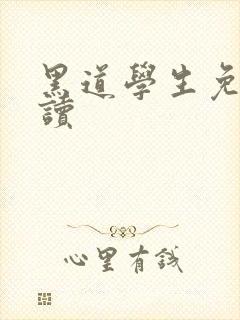 黑道學生免
讀
心里有錢